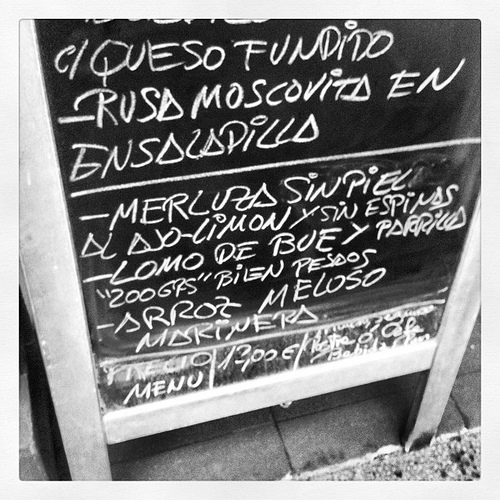 C/ QUESO FUNDIDO
-RUSA MOSCOVITA EN
ENSALADILLA
-MERLUZA SIN PIEL
AL AJO-LIMON Y SIN ESPINAS
-LOMO DE BUEY PARRILLA
"200GRS" BIEN PESADOS
-ARROZ MELOSO
MARINERA
PRECIO 12,00 €
MENU